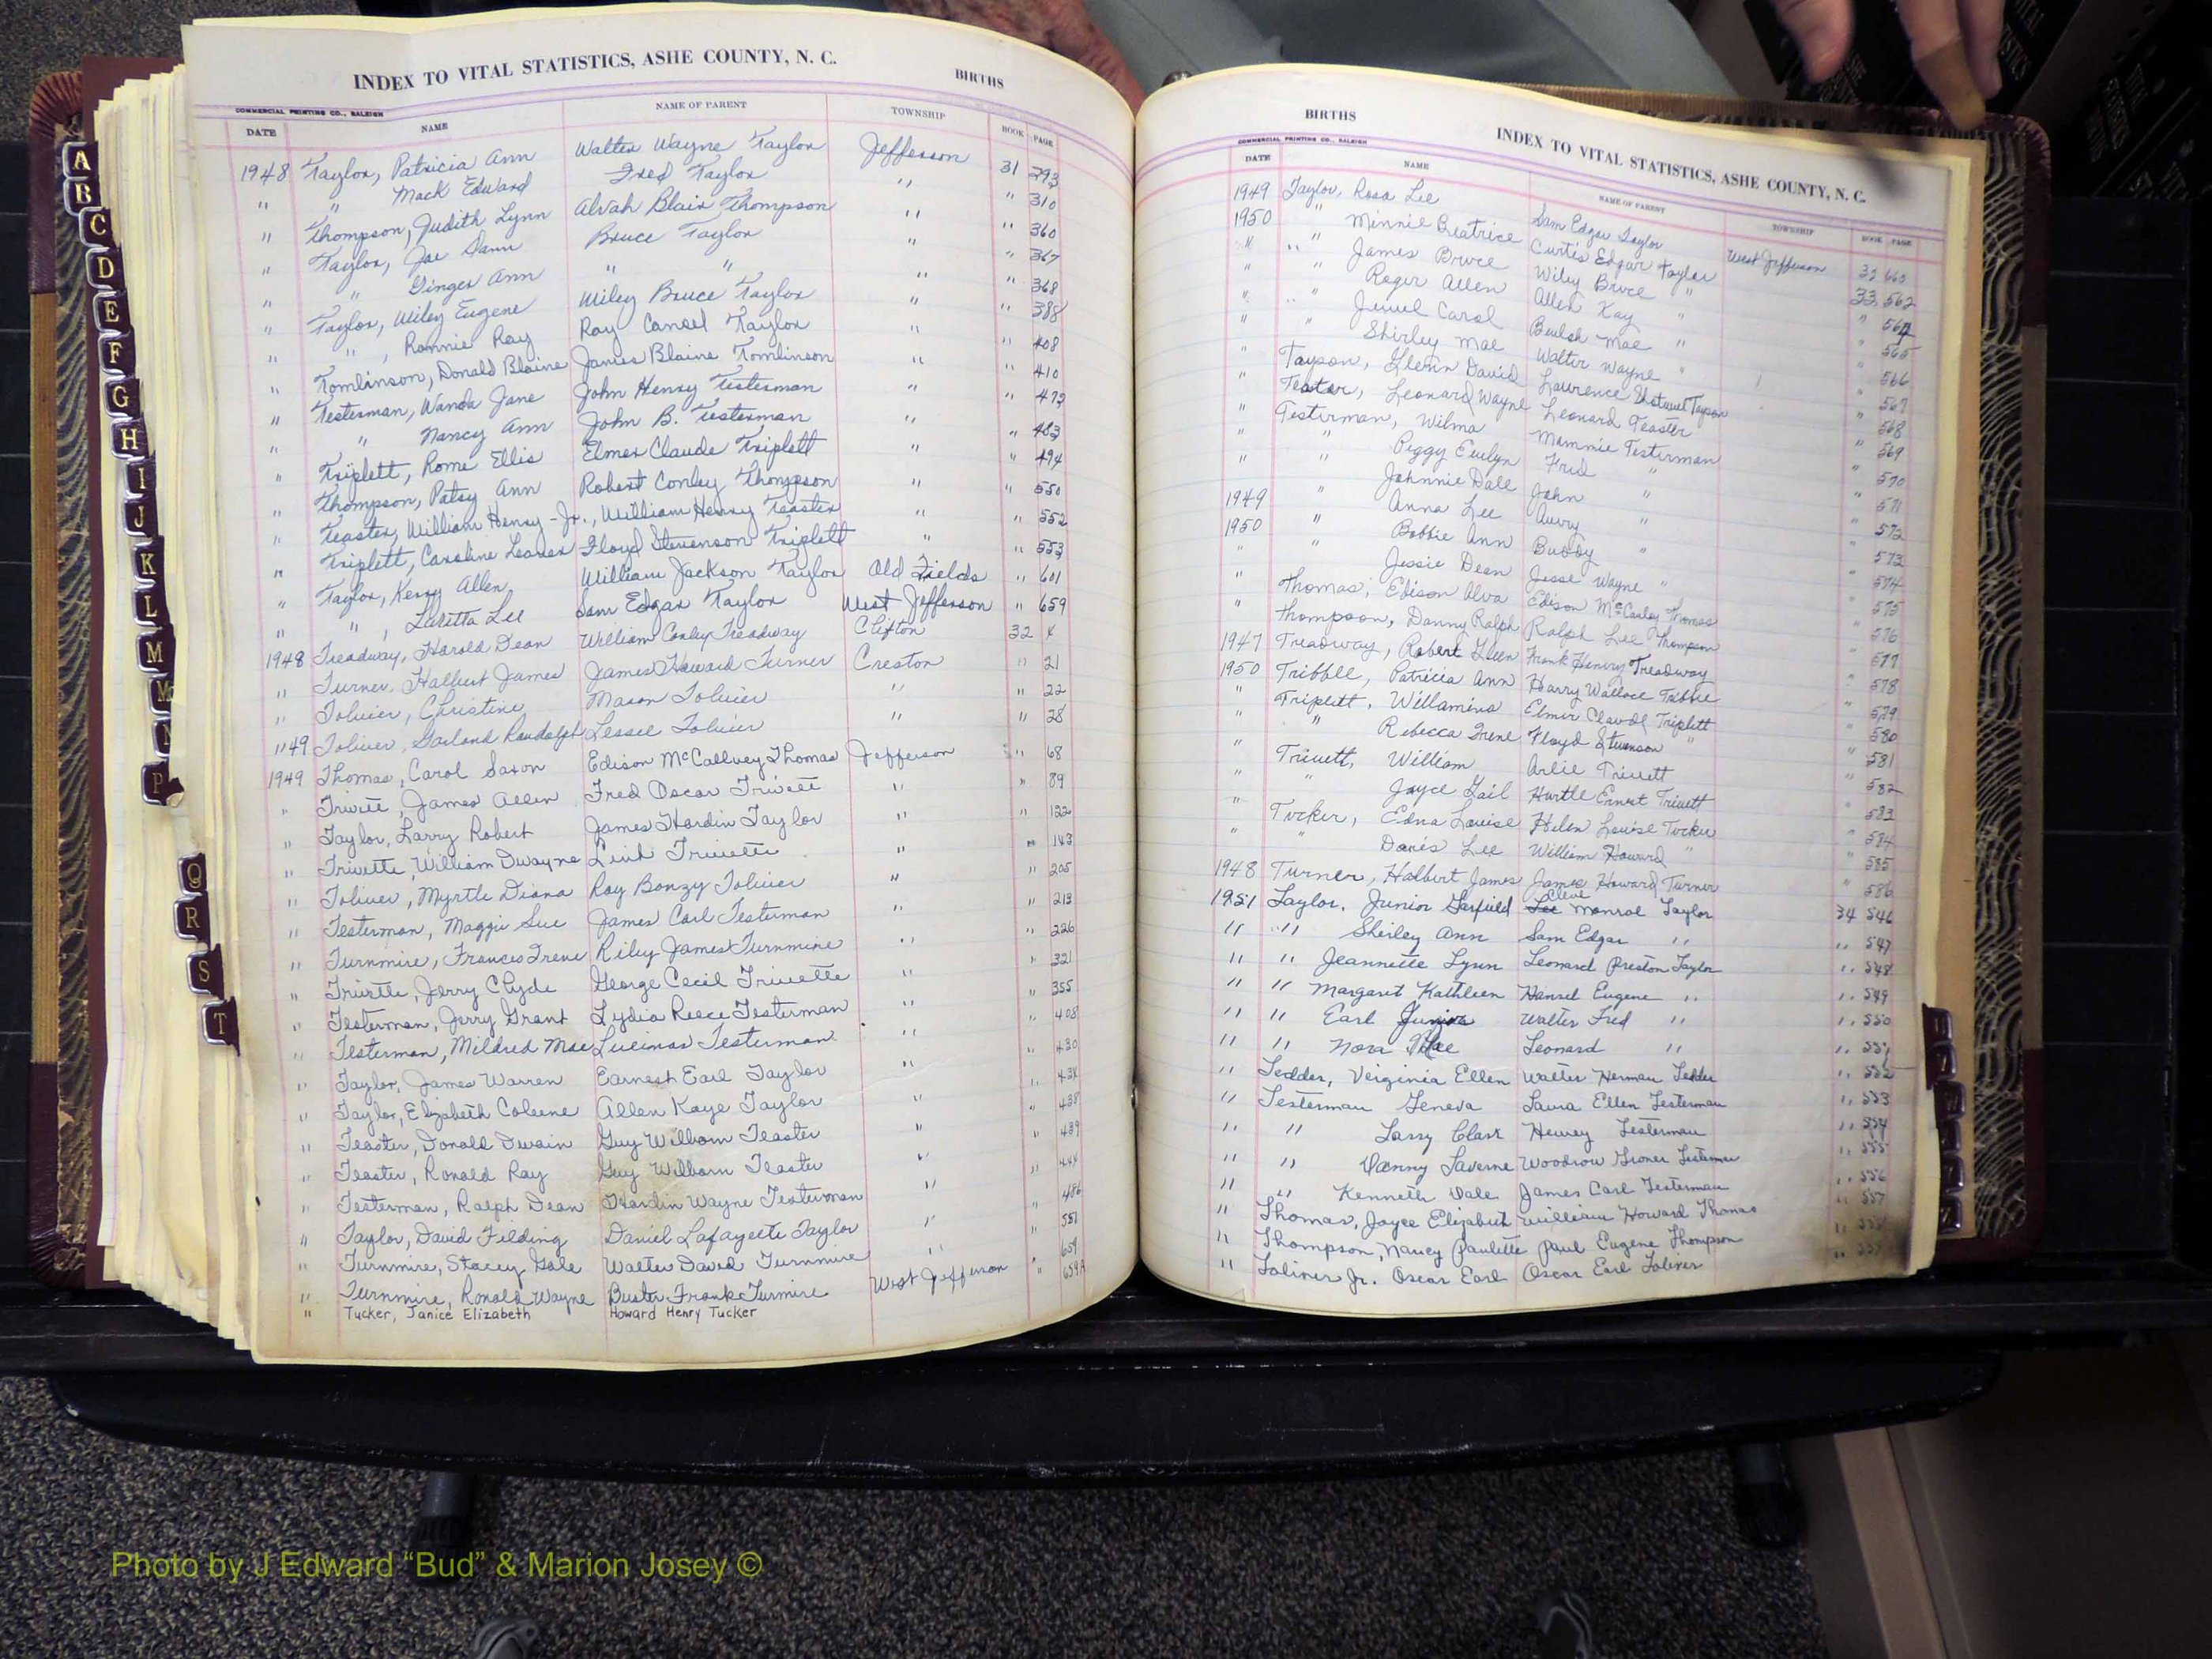 INDEX TO VITAL STATISTICS, ASHE COUNTY, N. C.
BIRTHS
COMMERCIAL PRINTING CO., RALEIGH
DATE NAME NAME OF PARENT TOWNSHIP BOOK PAGE
1948 Taylor, Patricia Ann Walter Wayne Taylor Jefferson 31 293
" " Mack Edward Fred Taylor " " 310
" Thompson, Judith Lynn Alvah Blair Thompson " " 360
" Taylor, Joe Dann Bruce Taylor " " 367
" " Ginger Ann " " " " 368
" Taylor, Wiley Eugene Wiley Bruce Taylor " " 388
" " , Ronnie Ray Ray Cansel Taylor " " 408
" Tomlinson, Donald Blaine James Blaine Tomlinson " " 410
" Testerman, Wanda Jane John Henry Testerman " " 472
" " Nancy Ann John B. Testerman " " 483
" Triplett, Rome Ellis Elmer Claude Triplett " " 494
" Thompson, Patsy Ann Robert Conley Thompson " " 550
" Teaster, William Henry-Jr., William Henry Teaster " " 552
" Triplett, Caroline Leaner Floyd Stevenson Triplett " " 553
" Taylor, Kerry Allen William Jackson Taylor Old Fields " 601
" " , Laretta Lee Sam Edgar Taylor West Jefferson " 659
1948 Treadway, Harold Dean William Conley Treadway Clifton 32 4
" Turner, Halbert James James Howard Turner Creston " 21
" Toliver, Christine Mason Toliver " " 22
1149 Toliver, Garland Randolph Lessie Toliver " " 28
1949 Thomas, Carol Saxon Edison McCallvey Thomas Jefferson " 68
" Trivett, James Allen Fred Oscar Trivett " " 89
" Taylor, Larry Robert James Hardin Taylor " " 122
" Trivette, William Dwayne Link Trivette " " 143
" Toliver, Myrtle Diana Roy Bonzy Toliver " " 205
" Testerman, Maggie Sue James Carl Testerman " " 213
" Turnmire, Frances Irene Riley James Turnmire " " 226
" Trivette, Jerry Clyde George Cecil Trivette " " 321
" Testerman, Jerry Grant Lydia Reece Testerman " " 355
" Testerman, Mildred Mae Testerman " " 408
" Taylor, James Warren Earnest Earl Taylor " " 430
" Taylor, Elizabeth Coleene Allen Kaye Taylor " 434
" Teaster, Donald Dwain Guy Wilborn Teaster " " 438
" Teaster, Ronald Ray Guy Wilborn Teaster " 439
" Testerman, Ralph Dean Hardin Wayne Testerman " " 444
" Taylor, David Filding Daniel Lafayette Taylor " " 486
" Turnmire, Stacey Gale Walter David Turnmire " " 551
" Turnmire, Ronald Wayne Buster Frank Turmire West Jefferson 659
" Tucker, Janice Elizabeth Howard Henry Tucker " 659A
BIRTHS
INDEX TO VITAL STATISTICS, ASHE COUNTY, N. C.
COMMERCIAL PRINTING CO., RALEIGH
DATE NAME NAME OF PARENT TOWNSHIP BOOK PAGE
1949 Taylor, Rosa Lee Sam Edgar Taylor West Jefferson 32 660
1950 " Minnie Beatrice Curtis Edgar Taylor 33 562
" " James Bruce Wiley Bruce " " 564
" " Roger Allen Allen Kay " " 565
" " Jewel Carol Beulah Mae " " 566
" " Shirley Mae Walter Wayne " " 567
" Tayson, Glenn David Lawrence Tayson " 568
" Teater, Leonard Wayne Leonard Teaster " 569
" Testerman, Wilma Mammie Testerman " 570
" " Peggy Evelyn Fred " " 571
" " Johnnie Dale John " " 572
1949 " Anna Lee Avery " " 573
1950 " Bobbie Ann Buddy " " 574
" " Jessie Dean Jesse Wayne " " 575
" Thomas, Edison Alva Edison McCauley Thomas " 576
" Thompson, Danny Ralph Ralph Lee Thompson " 577
1947 Treadway, Robert Glen Frank Henry Treadway " 578
1950 Tribble, Patricia Ann Harry Wallace Tribble " 579
" Triplett, Willamina Elmer Claude Triplett " 580
" " Rebecca Irene Floyd Stvenson " " 581
" Trivett, William Arlie Trivett " 582
" " Jayce Gail Hurtle Ernest Trivett " 583
" Tucker, Edna Louise Helen Louise Tucker " 584
" " Davis Lee William Howard " " 585
1948 Turner, Halbert James James Howard Turner " 586
1951 Taylor, Junior Garfield Cleve Lee Monroe Taylor 34 546
" " Shirley Ann Sam Edgar " " 547
" " Jeannette Lynn Leonard Preston Taylor " 548
" " Margaret Kathleen Hansel Eugene " " 549
" " Earl Junior Walter Fred " " 550
" " Nora Mae Leonard " " 551
" Tedder, Verginia Ellen Walter Herman Tedder " 552
" Testerman Geneva Laura Ellen Testerman " 553
" " Larry Clark Hewey Testerman " 554
" " Danny Laverne Woodrow Testerman " 555
" " Kenneth Dale James Carl Testerman " 556
" Thomas, Joyce Elizabeth William Howard Thomas " 557
" Thompson, Nancy Paulette Paul Eugene Thompson
" Toliver Jr. Oscar Earl Oscar Earl Toliver
A
B
C
D
E
F
G
H
I
J
K
L
M
Mc
N
P
Q
R
S
T
Photo by J Edward “Bud” & Marion Josey ©